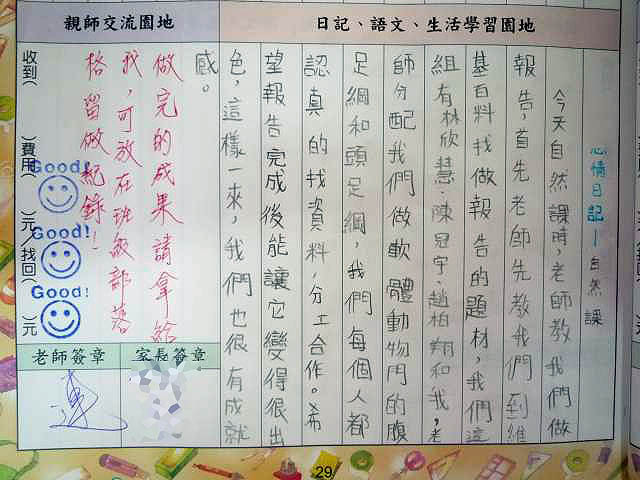 日記、語文、生活學習園地
心情日記－自然課
今天自然課時，老師教我們做
報告，首先老師先教我們到維
基百科找做報告的題材，我們這
組有林欣慧、陳冠宇、趙柏翔和我，老
師分配我們做軟體動物門的腹
足綱和頭足綱，我們每個人都
認真的找資料，分工合作。希
望報告完成後能讓它變得很出
色，這樣一來，我們也很有成就
感。
親師交流園地
做完的成果請拿給
我，可放在班級部落
格留做紀錄！
Good!
Good!
Good!
收到（ ）費用（ ）元/找回（ ）元
家長簽章
老師簽章
29